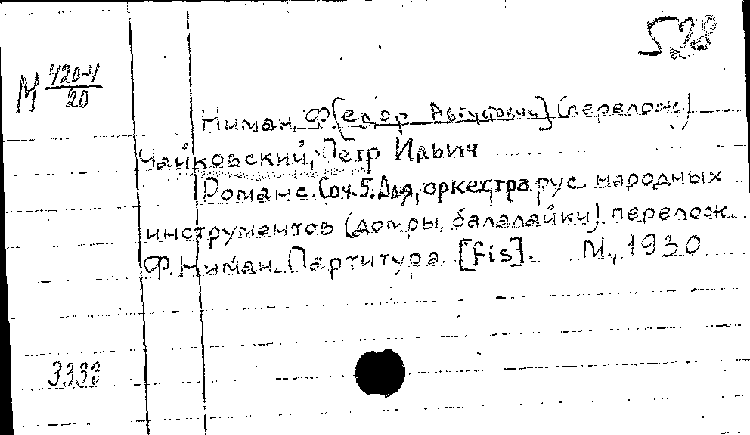 528
М 420-4
20
Ниман, Ф[едор Августович] (перелож.)
Чайковский, Петр Ильич
Романс. Соч. 5. Для оркестра рус. народных
инструментов (домры, балалайки) перелож.
Ф. Ниман. Партитура. [fis]. М., 1930
3333